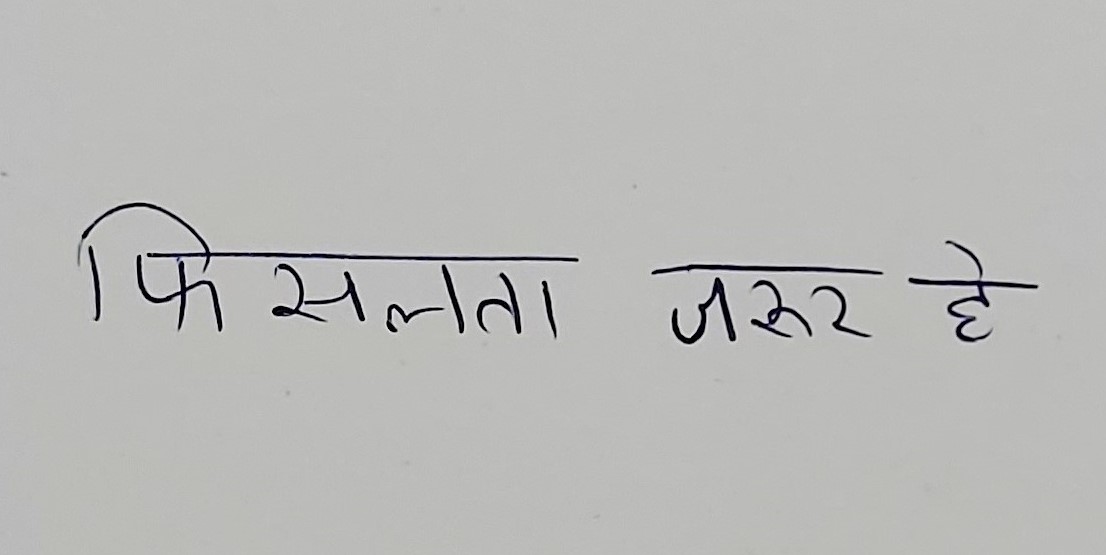 फिसलता जरूर हे